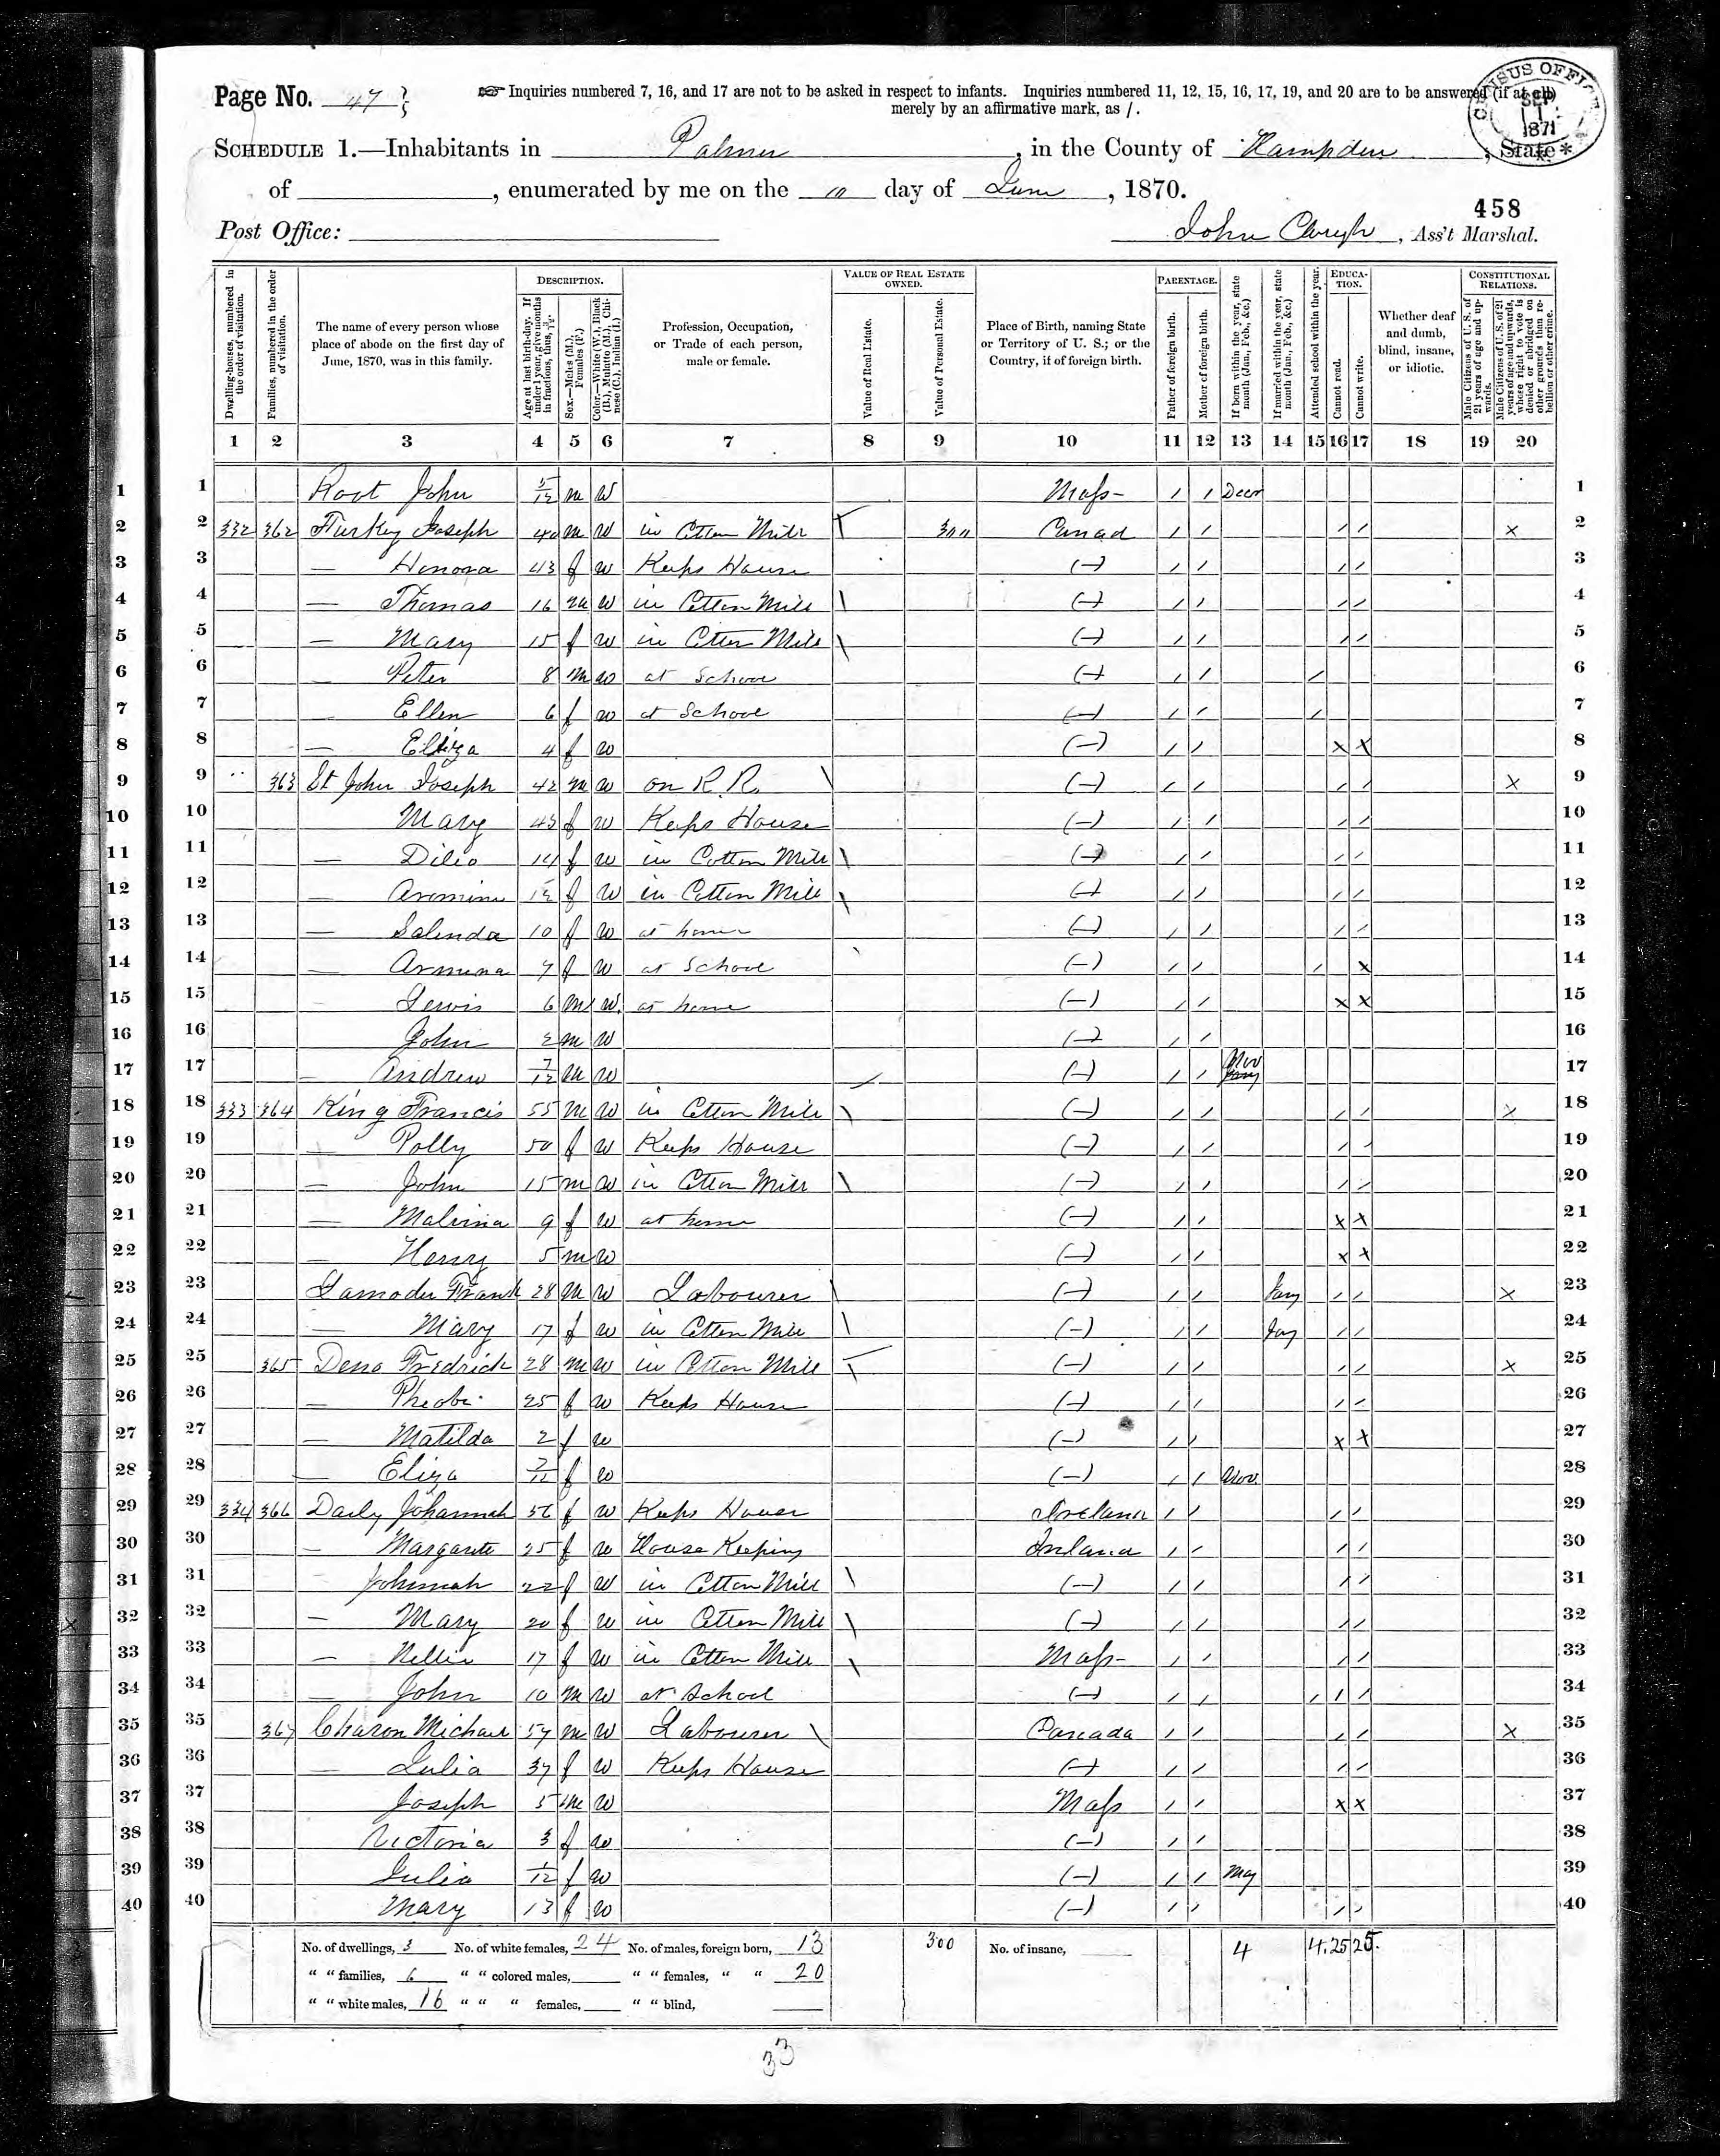 Page No. 47
☞ Inquiries numbered 7, 16, and 17 are not to be asked in respect to infants. Inquiries numbered 11, 12, 15, 16, 17, 19, and 20 are to be answered (if at all) merely by an affirmative mark, as /.
CENSUS OFFICE SEP 1 1871
SCHEDULE 1.—Inhabitants in Palmer, in the County of Hampden, State
of , enumerated by me on the day of June, 1870.
458
Post Office: John Clough, Ass't Marshal.
Dwelling-houses, numbered in the order of visitation.
Families, numbered in the order of visitation.
The name of every person whose place of abode on the first day of June, 1870, was in this family.
DESCRIPTION.
Age at last birth-day. If under 1 year, give months in fractions, thus, 3/12.
Sex.—Males (M.), Females (F.)
Color.—White (W.), Black (B.), Mulatto (M.), Chinese (C.), Indian (I.)
Profession, Occupation, or Trade of each person, male or female.
VALUE OF REAL ESTATE OWNED.
Value of Real Estate.
Value of Personal Estate.
Place of Birth, naming State or Territory of U. S.; or the Country, if of foreign birth.
PARENTAGE.
Father of foreign birth.
Mother of foreign birth.
If born within the year, state month (Jan., Feb., &c.)
If married within the year, state month (Jan., Feb., &c.)
Attended school within the year.
EDUCATION.
Cannot read.
Cannot write.
Whether deaf and dumb, blind, insane, or idiotic.
CONSTITUTIONAL RELATIONS.
Male Citizens of U. S. of 21 years of age and upwards.
Male Citizens of U. S. of 21 years of age and upwards, whose right to vote is denied or abridged on other grounds than rebellion or other crime.
1 2 3 4 5 6 7 8 9 10 11 12 13 14 15 16 17 18 19 20
1 Root John 5/12 m W Mass - / / Decr 1
2 332 362 Turkey Joseph 40 m W in Cotton Mill 300 Canad / / / / x 2
3 — Honora 43 f W Keeps House (—) / / / / 3
4 — Thomas 16 m W in Cotton Mill (—) / / / / 4
5 — Mary 15 f W in Cotton Mill (—) / / / / 5
6 — Peter 8 m W at School (—) / / / 6
7 Ellen 6 f W at School (—) / / / 7
8 — Eliza 4 f W (—) / / x x 8
9 363 St John Joseph 42 m W on R. R. (—) / / / / x 9
10 Mary 43 f W Keeps House (—) / / / / 10
11 — Dilio 14 f W in Cotton Mill (—) / / / / 11
12 — f W in Cotton Mill (—) / / / / 12
13 — Salinda 10 f W at home (—) / / / / 13
14 — Armina 7 f W at School (—) / / / x 14
15 Lewis 6 m W at home (—) / / x x 15
16 John 2 m W (—) / / 16
17 — Andrew 7/12 m W (—) / / Nov 17
18 333 364 King Francis 55 m W in Cotton Mill (—) / / / / x 18
19 — Polly 50 f W Keeps House (—) / / / / 19
20 — John 15 m W in Cotton Mill (—) / / / / 20
21 — Malvina 9 f W at home (—) / / x x 21
22 — Henry 5 m W (—) / / x x 22
23 Lamoder Frank 28 m W Labourer (—) / / Jany / / x 23
24 — Mary 17 f W in Cotton Mill (—) / / Jay / / 24
25 365 Deno Fredrick 28 m W in Cotton Mill (—) / / / / x 25
26 — Pheobe 25 f W Keeps House (—) / / / / 26
27 — Matilda 2 f W (—) / / x x 27
28 — Eliza 7/12 f W (—) / / Nov. 28
29 334 366 Daily Johannah 56 f W Keeps House Ireland / / / / 29
30 — Margarete 25 f W House Keeping Ireland / / / / 30
31 Johannah 22 f W in Cotton Mill (—) / / / / 31
32 — Mary 20 f W in Cotton Mill (—) / / / / 32
33 — Nellie 17 f W in Cotton Mill Mass - / / / / 33
34 John 10 m W at School (—) / / / / / 34
35 367 Charon Michael 57 m W Labourer Canada / / / / x 35
36 — Julia 37 f W Keeps House (—) / / / / 36
37 Joseph 5 m W Mass / / x x 37
38 Victoria 3 f W (—) / / 38
39 Julia 1/12 f W (—) / / May 39
40 Mary 13 f W (—) / / / / 40
No. of dwellings, 3 No. of white females, 24 No. of males, foreign born, 13 300 No. of insane, 4 4. 25 25.
" " families, 6 " " colored males, " " females, " " 20
" " white males, 16 " " " females, " " blind,
33